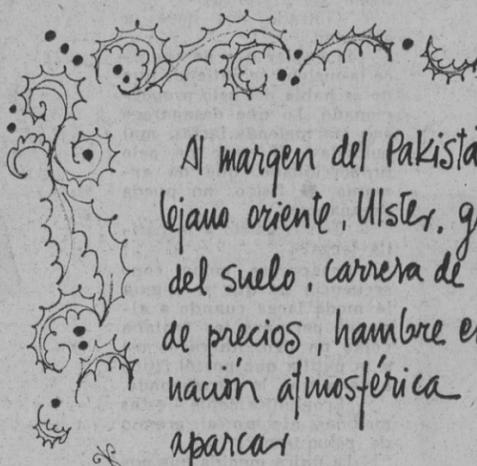 Al margen del Pakistá
lejano oriente, Ulster, g
del suelo, carrera de
de precios, hambre e
nación atmosférica
aparcar